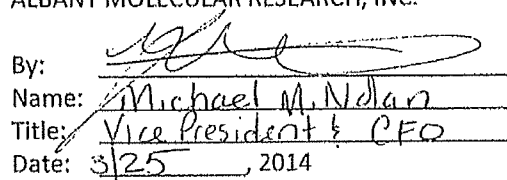 ALBANY MOLECULAR RESEARCH, INC.
By:
Name: Michael M. Nolan
Title: Vice President & CFO
Date: 3/25, 2014